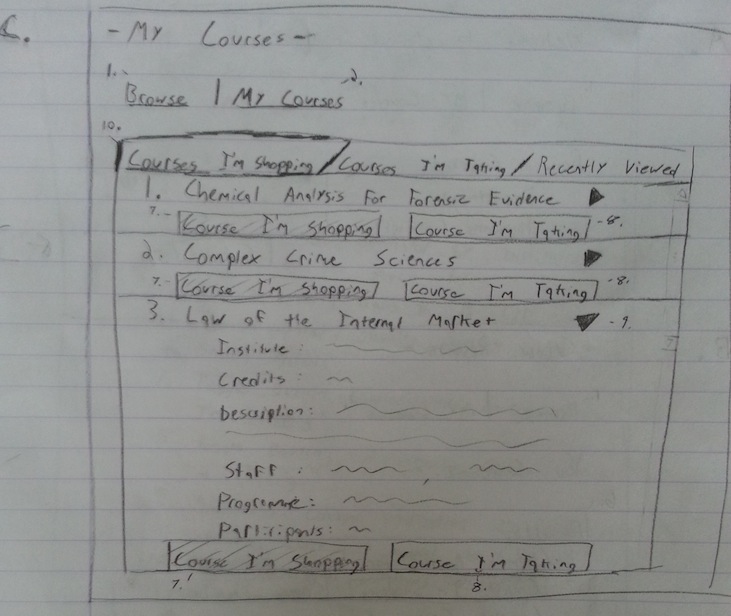 C.
- My Courses -
1. 2.
Browse | My Courses
10.
Courses I'm Shopping / Courses I'm Taking / Recently Viewed
1. Chemical Analysis For Forensic Evidence
7. - Course I'm Shopping Course I'm Taking - 8.
2. Complex Crime Sciences
7. - Course I'm Shopping Course I'm Taking - 8.
3. Law of the Internal Market - 9.
Institute:
Credits:
Description:
Staff:
Programme:
Participants:
Course I'm Shopping Course I'm Taking
7. 8.